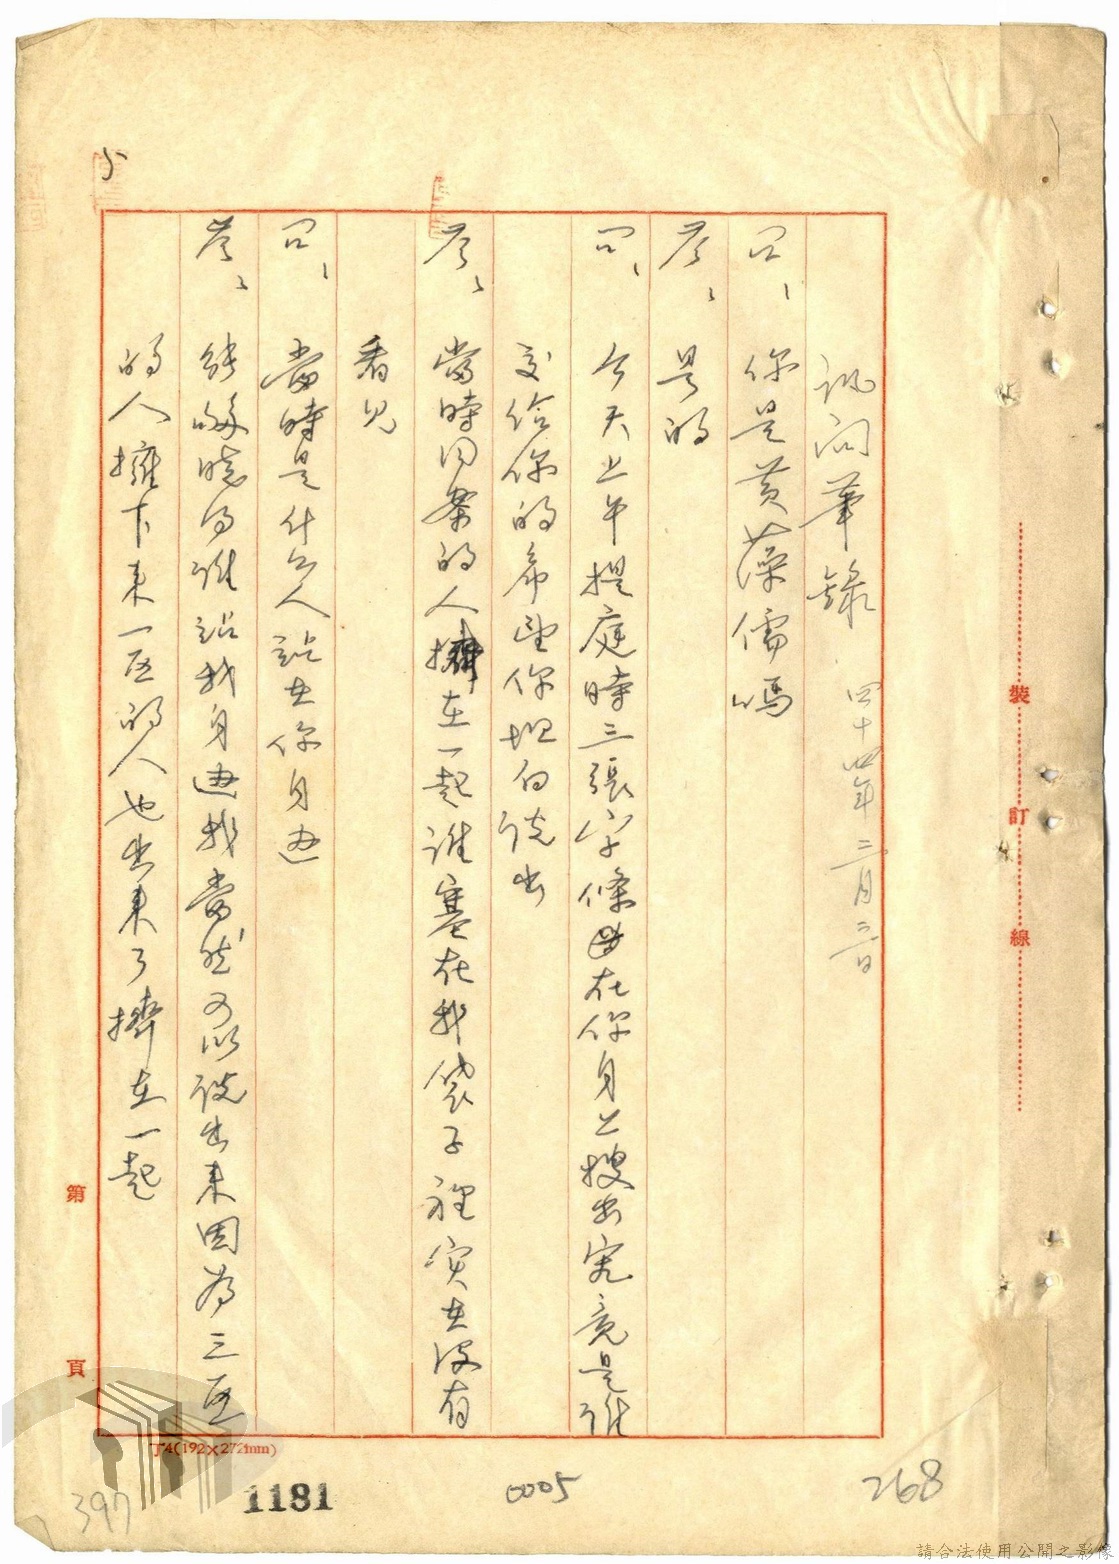 訊問筆錄 四十四年三月三日
問、你是黃藻儒嗎
答、是的
問、今天上午提庭時三張小字條在你身上搜出究竟是誰
交给你的希望你坦白說出
答、當時同案的人擠在一起誰塞在我袋子裡實在沒有
看見
問、當時是什么人站在你身边
答、能夠曉得誰站我身边我當然可以說出来因為三區
的人擁下来一區的人也出来了擠在一起
5
裝
訂
線
第
頁
丁4(192×272mm)
397
1181
0005
268
請合法使用公開之影像